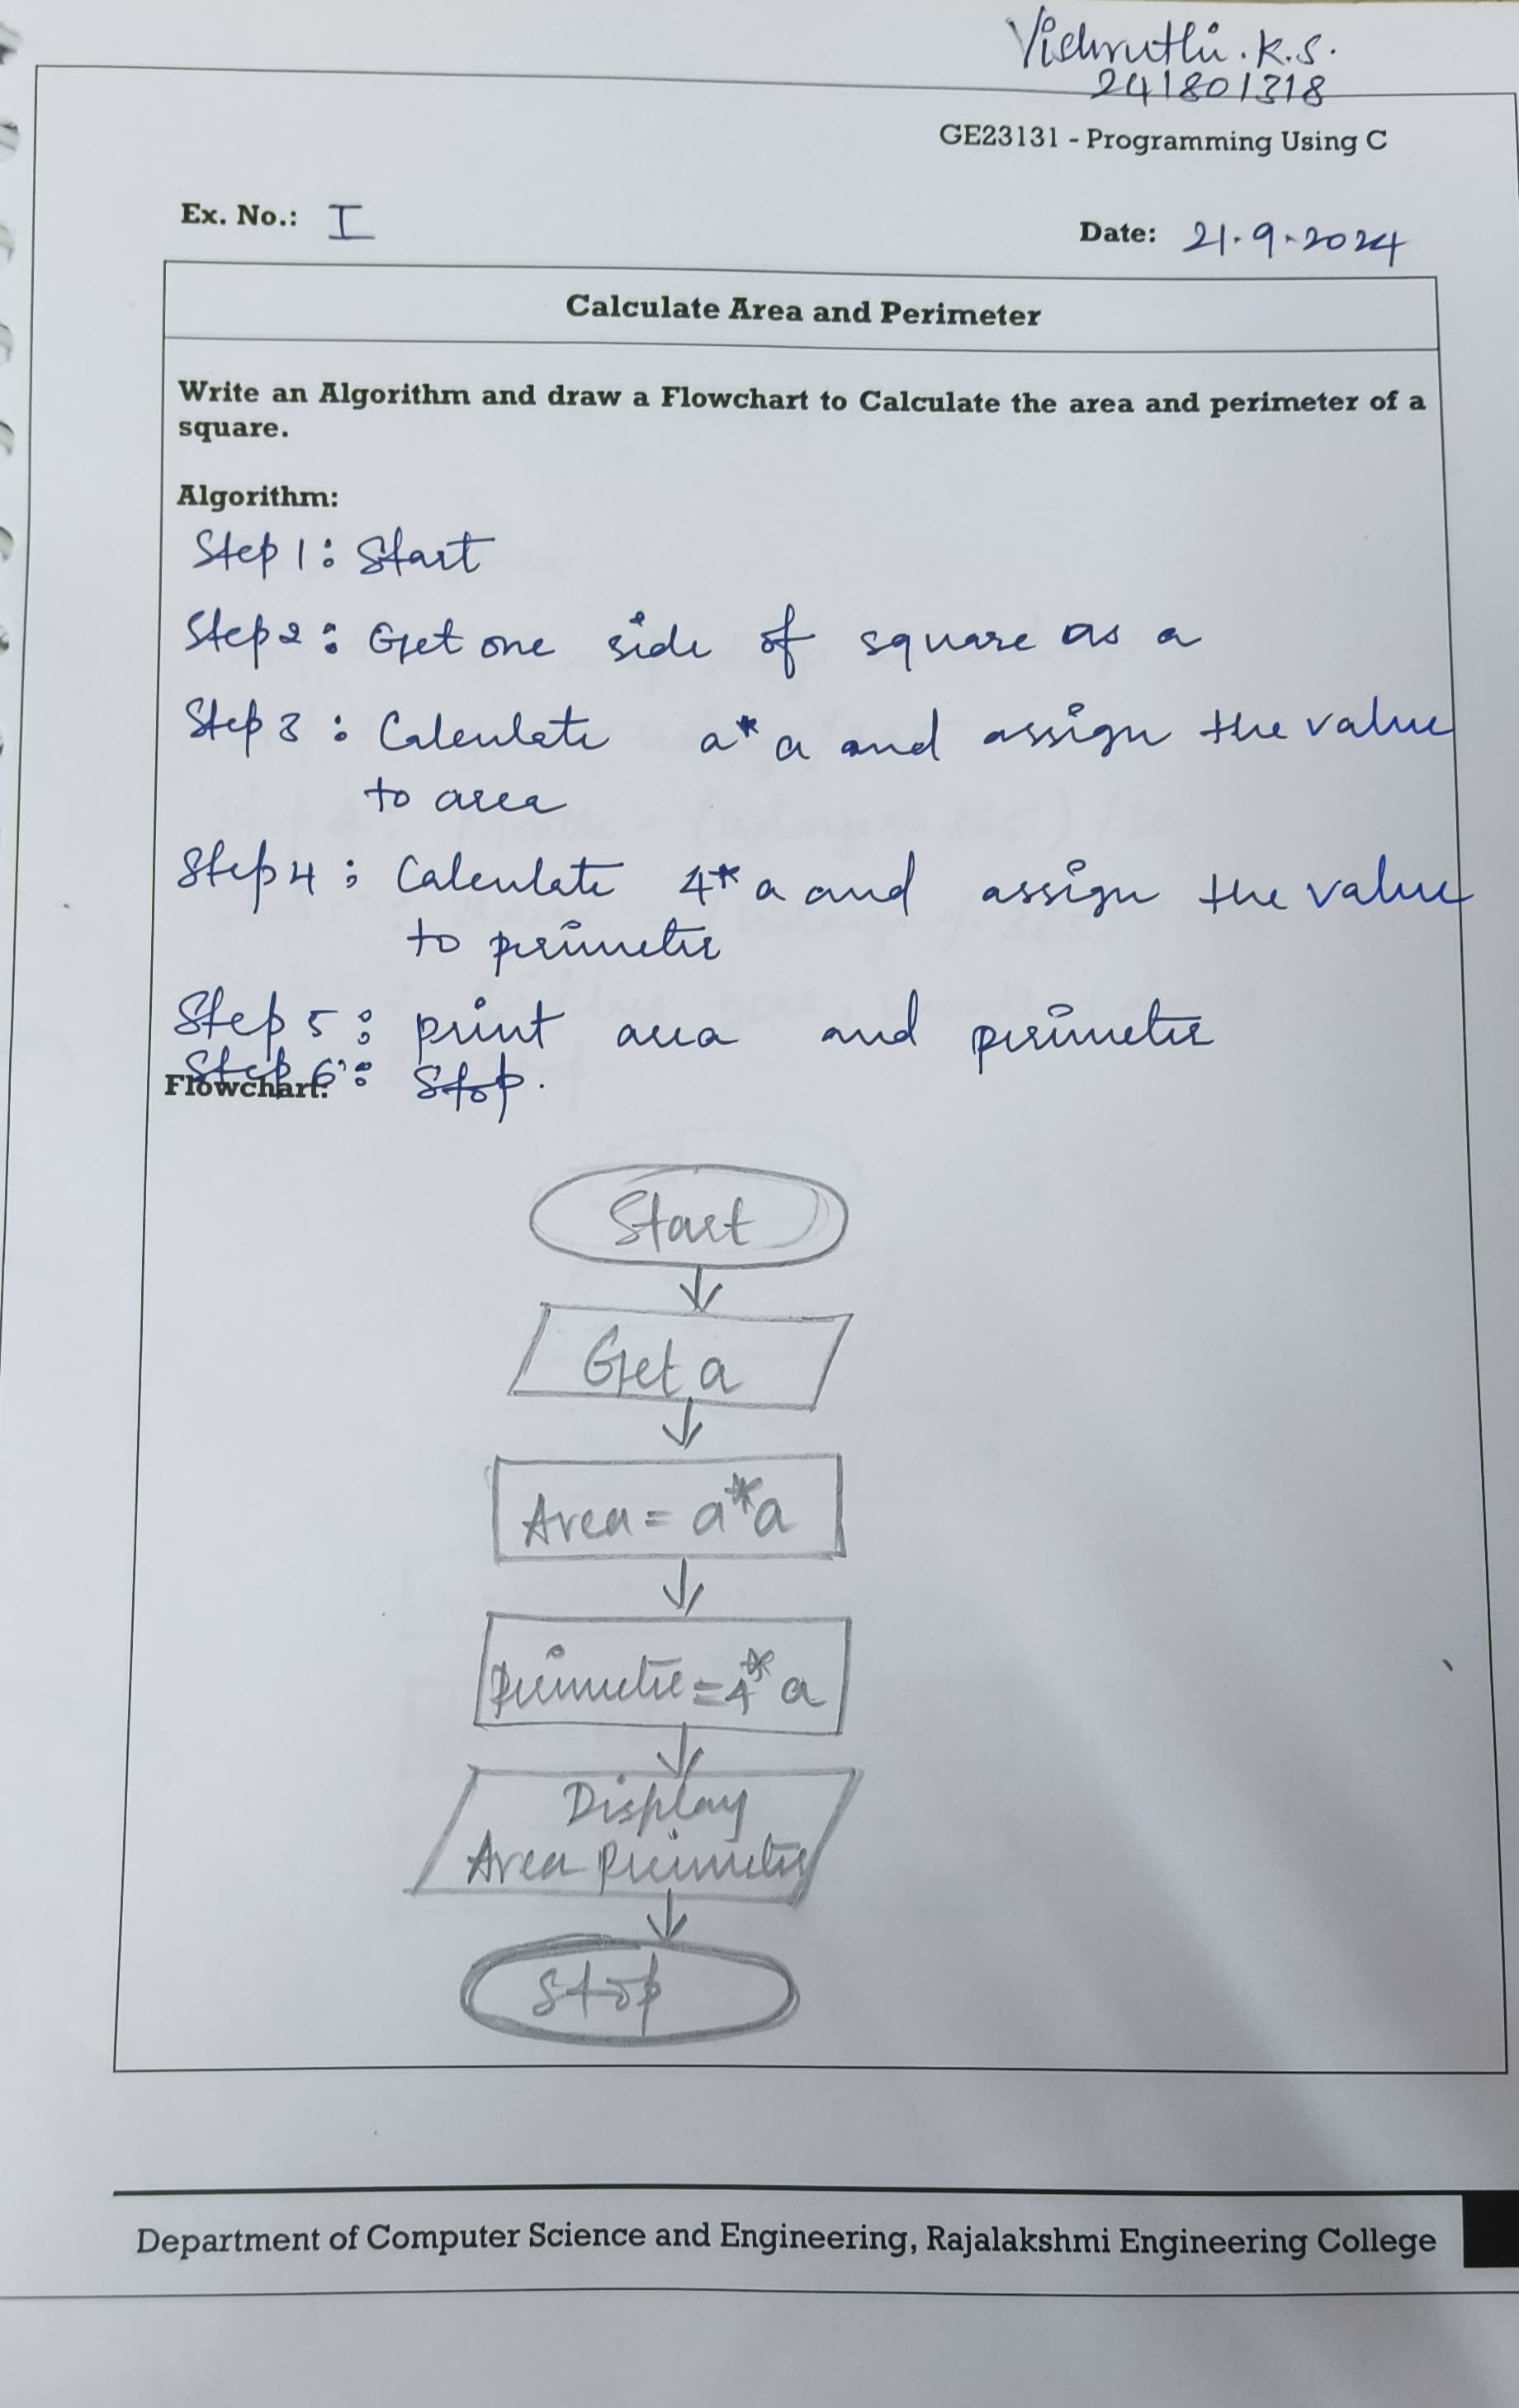 Vishruthi.K.S.
241801318
GE23131 - Programming Using C
Ex. No.: I
Date: 21.9.2024
Calculate Area and Perimeter
Write an Algorithm and draw a Flowchart to Calculate the area and perimeter of a
square.
Algorithm:
Step 1: Start
Step 2: Get one side of square as a
Step 3: Calculate a*a and assign the value
to area
Step 4: Calculate 4*a and assign the value
to perimeter
Step 5: print area and perimeter
Step 6: Stop.
Flowchart:
Start
Get a
Area = a*a
perimeter = 4*a
Display
Area perimeter
Stop
Department of Computer Science and Engineering, Rajalakshmi Engineering College